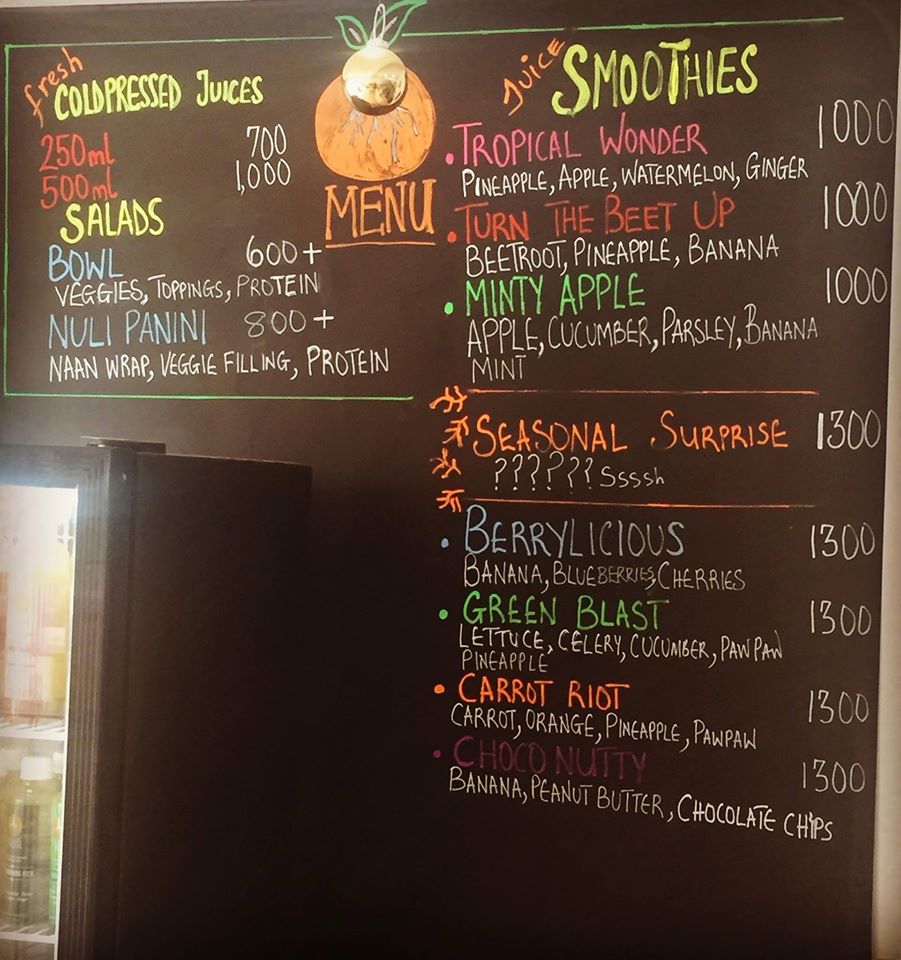 fresh
COLDPRESSED JUICES
250ml 700
500ml 1,000
SALADS
BOWL 600+
VEGGIES, TOPPINGS, PROTEIN
NULI PANINI 800+
NAAN WRAP, VEGGIE FILLING, PROTEIN
MENU
JUICE
SMOOTHIES
• TROPICAL WONDER 1000
PINEAPPLE, APPLE, WATERMELON, GINGER
• TURN THE BEET UP 1000
BEETROOT, PINEAPPLE, BANANA
• MINTY APPLE 1000
APPLE, CUCUMBER, PARSLEY, BANANA
MINT
SEASONAL SURPRISE 1300
?????? Ssssh
• BERRYLICIOUS 1300
BANANA, BLUEBERRIES, CHERRIES
• GREEN BLAST 1300
LETTUCE, CELERY, CUCUMBER, PAWPAW
PINEAPPLE
• CARROT RIOT 1300
CARROT, ORANGE, PINEAPPLE, PAWPAW
• CHOCO NUTTY 1300
BANANA, PEANUT BUTTER, CHOCOLATE CHIPS